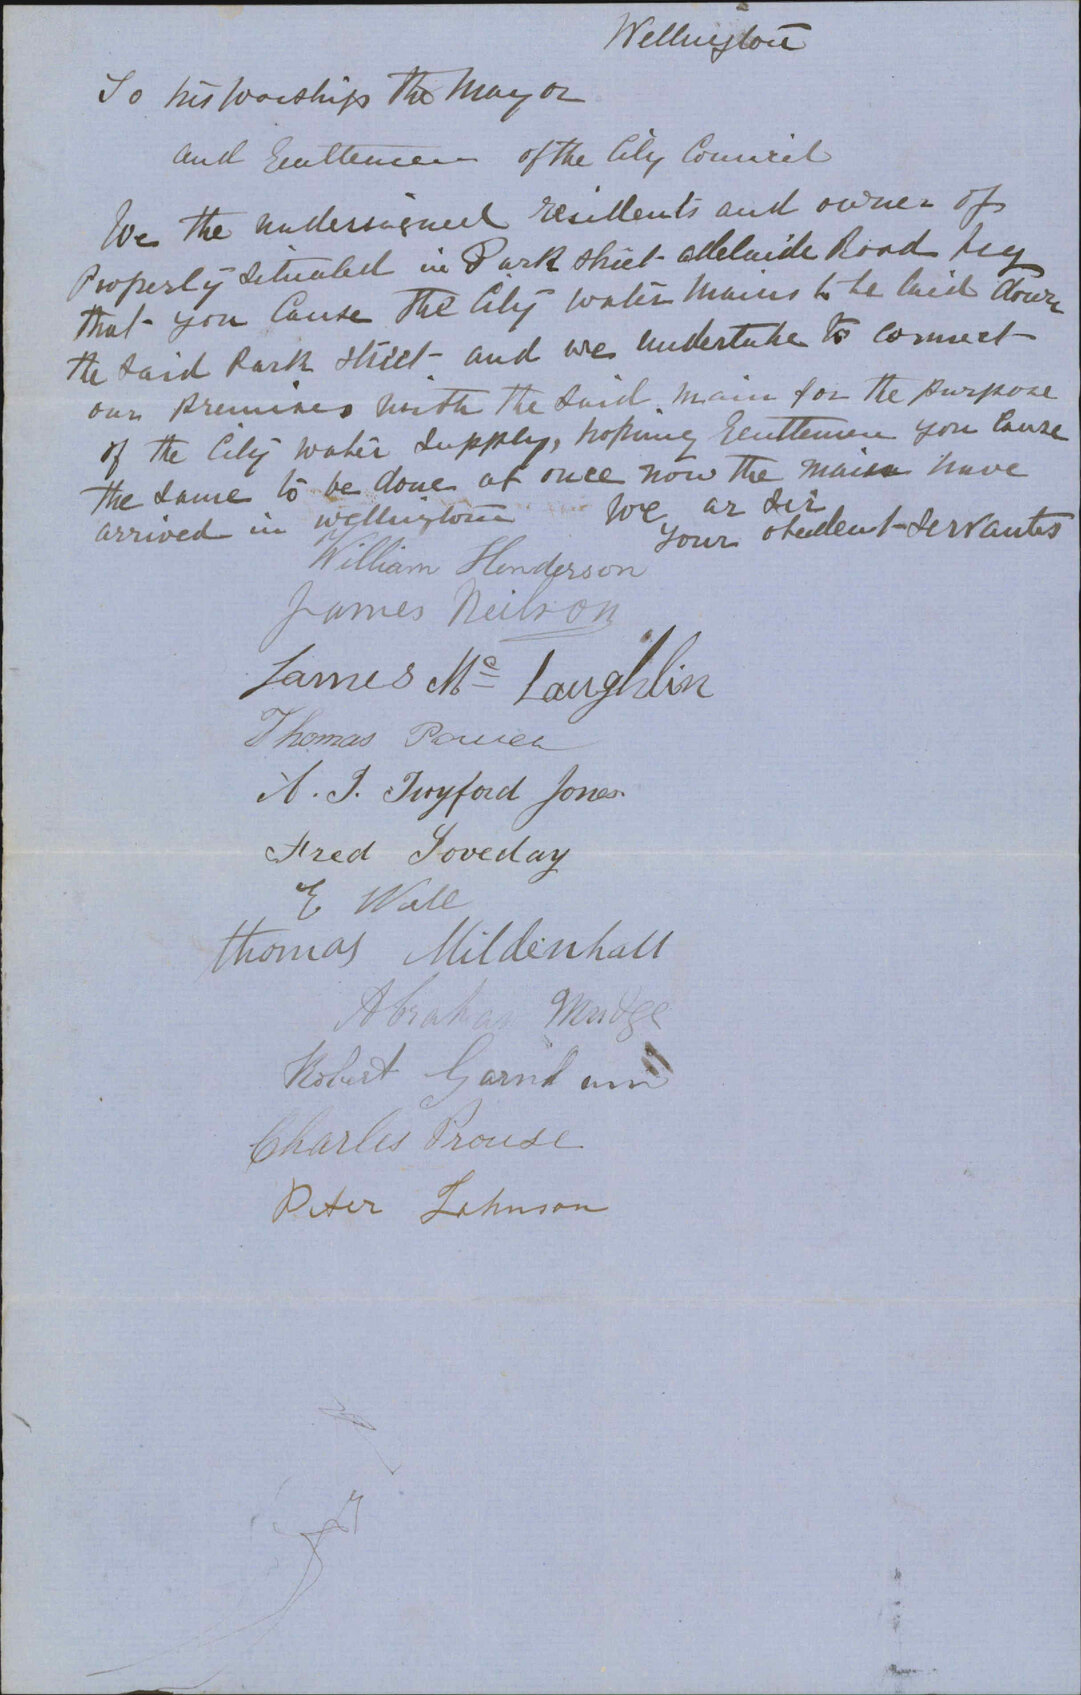 Wellington
To his Worship the Mayor
and Gentlemen of the City Council
We the undersigned residents and owner of
Property situated in Park street adelaide Road beg
that you Cause the City water Mains to be laid down
the said Park street and we undertake to connect
our premises with the said main for the purpose
of the City water supply, hoping Gentlemen you Cause
the same to be done at once now the mains have
arrived in wellington We ar Sir
Your obedent Servants
William Henderson
James Neilson
James Mc Laughlin
Thomas Power
A. J. Twyford Jones
Fred Loveday
E Wall
thomas Mildenhall
Abraham Mudge
Robert
Charles Prouse
Peter Johnson